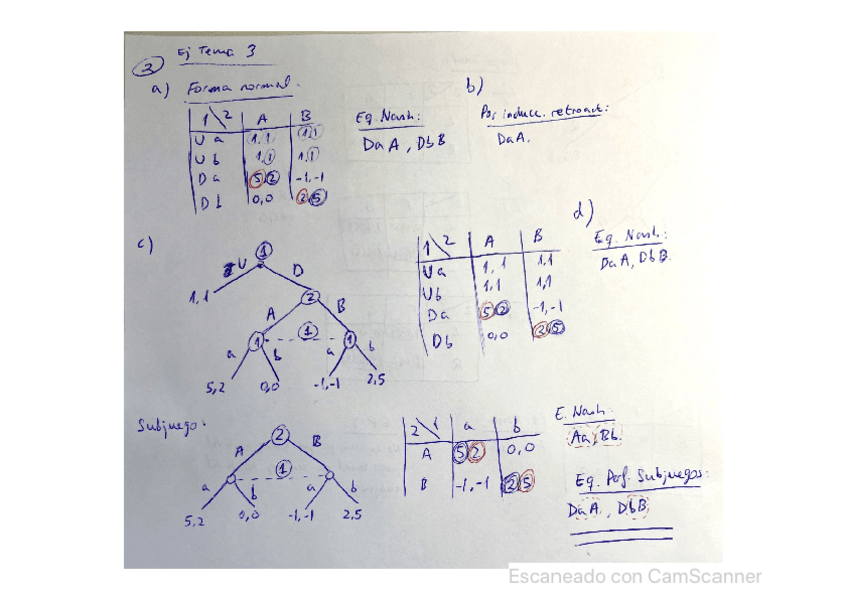 2
Ej Tema 3
a) Forma normal.
1\2 A B
U a 1,1 1,1
U b 1,1 1,1
D a 5 2 -1,-1
D b 0,0 2 5
Eq. Nash:
DaA, DbB
b)
Por induce. retroact:
DaA.
c)
1
U D
1,1
2
A B
1 1 1
a b a b
5,2 0,0 -1,-1 2,5
1\2 A B
Ua 1,1 1,1
Ub 1,1 1,1
Da 5 2 -1,-1
Db 0,0 2 5
d)
Eq. Nash:
DaA, DbB.
Subjuego:
2
A B
1
a b a b
5,2 0,0 -1,-1 2,5
2\1 a b
A 5 2 0,0
B -1,-1 2 5
E. Nash
Aa, Bb.
Eq. Perf. Subjuegos:
DaA, DbB
Escaneado con CamScanner